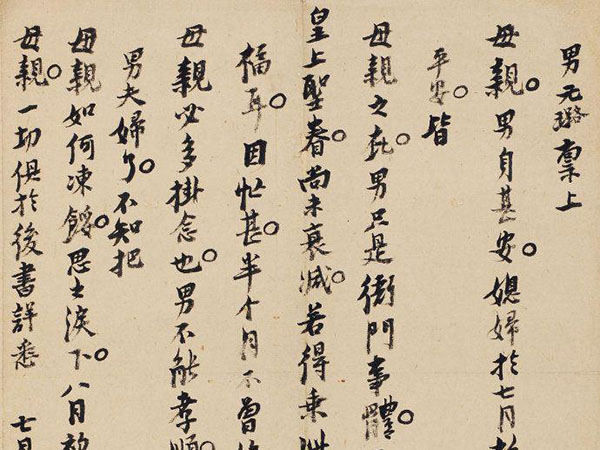 男元璐稟上
母親。男自甚安。媳婦於七月
平安。皆
母親之庇。男只是衙門事體。
皇上聖眷。尚未衰減。若得乘
福耳。因忙甚。半个月不曾
母親必多掛念也。男不能孝順。
男夫婦了。不知把
母親如何凍餒。思之淚下。八月初
母親。一切俱於後書詳悉 七月